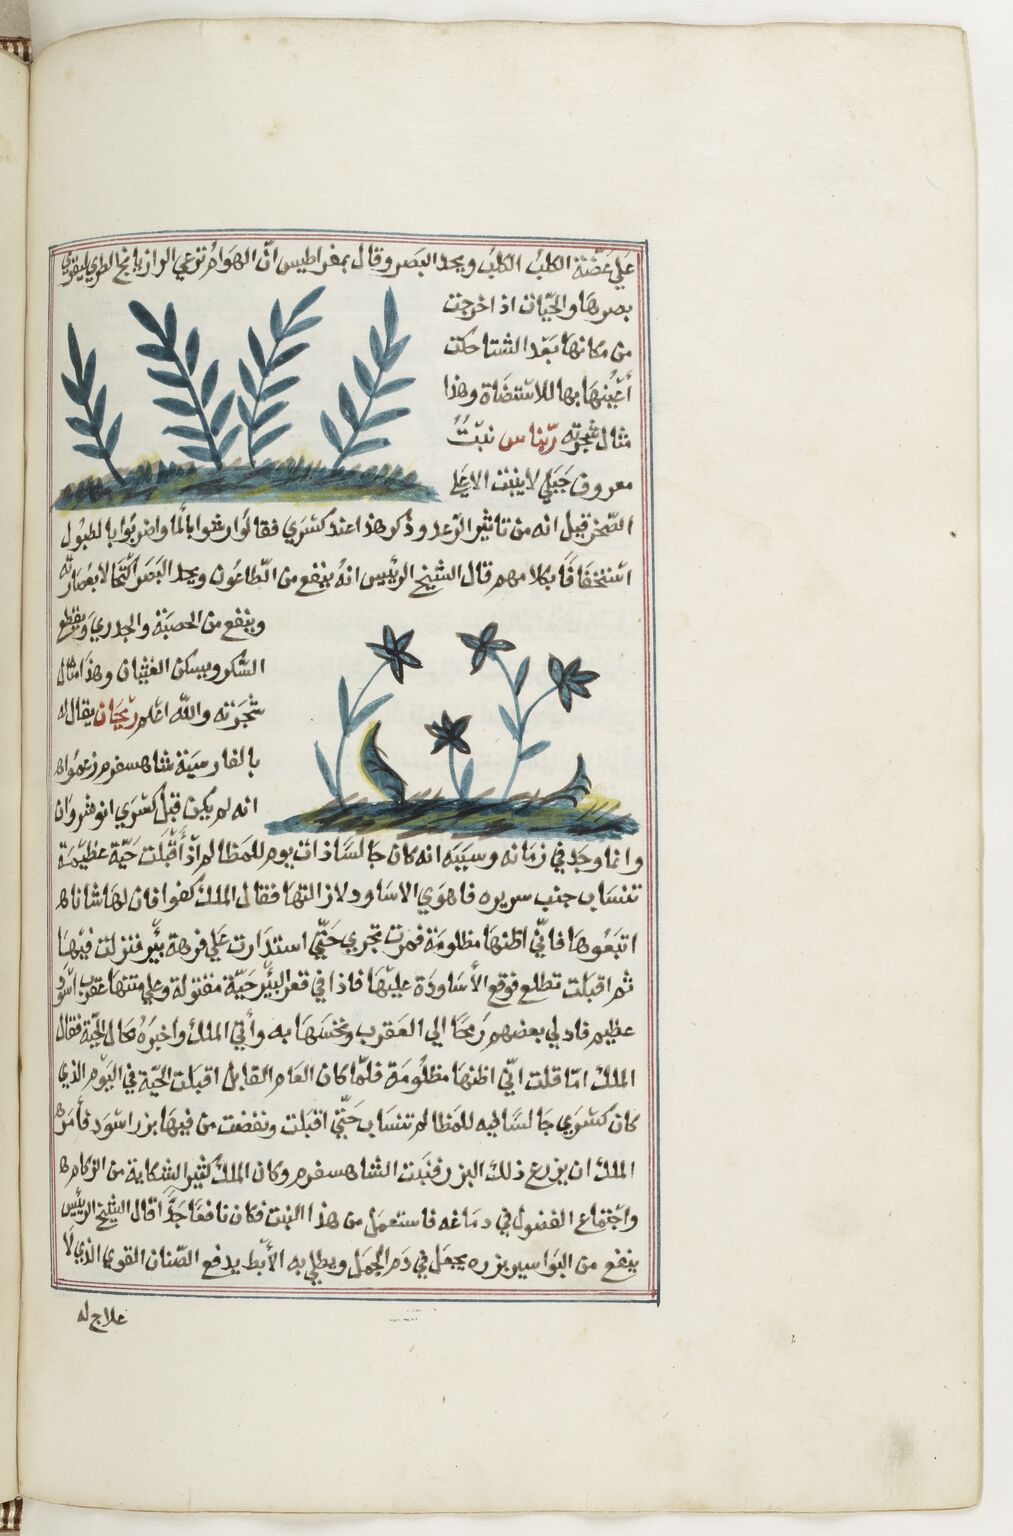 علي عضّة الكلب الكلِب ويحد البصر وقال بمقراطيس انّ الهوام ترعي الرازيانج الطري ليقوي
بصرها والحيّات اذا خرجت
من مكانها بعد الشتا حكت
أعْينها بها للاستضاة وهذا
مثال شجرته ريّباس نبتٌ
معروف جبلي لا ينبت الا علي
الصّخر قيل انه من تاثير الرّعد وذكر هذا عند كسري فقالوا رشوا بالما واضربوا بالطبول
استخفافًا بكلامهم قال الشيخ الرئيس انهُ ينفع من الطّاعون ويحد البصر اكتحالا بعصارته
وينفع من الحصبة والجدري ويقطع
السّكر ويسكن الغثيان وهذا مثال
شجرته واللّه اعلم ريحان يقال له
بالفارسيّة شاهسفرم زعموا
انه لم يكن قبل كسري انوشروان
وانما وجد في زمانه وسببه انه كان جالسًا ذات يوم للمظالم اذْ أقبلت حيّة عظيمة
تنساب جنب سريره فاهوي الاساودلاز التها فقال الملك كفوا فان لها شانا
اتبعوها فانّي اظنها مظلومة فمرت تجري حتّي استدارت علي فوهة بئر فنزلت فيها
ثم اقبلت تطلع فوقع الأساودة عليها فاذا في قعر البئر حيّة مقتولة وعلي متنها عقرب اسود
عظيم فادلي بعضهم رمحًا الي العقرب ونخسها به وأتي الملك واخبره بحال الحيّة فقال
الملك امّا قلت انّي اظنها مظلومة فلمّا كان العام القابل اقبلت الحيّة في اليوم الذي
كان كسري جالسًا فيه للمظالم تنساب حتّي اقبلت ونفضت من فيها بزرا سود فأمر
الملك ان يزرع ذلك البزر فنبت الشاهسفرم وكان الملك كثير الشكاية من الزكام
واجتماع الفضول في دماغه فاستعمل من هذا النبت فكان نافعًا جدًّا قال الشيخ الرئيس
ينفع من البواسير بزره يجعل في دم الجمل ويطلي به الأبط يدفع الصّنان القوي الذي لا
علاج له